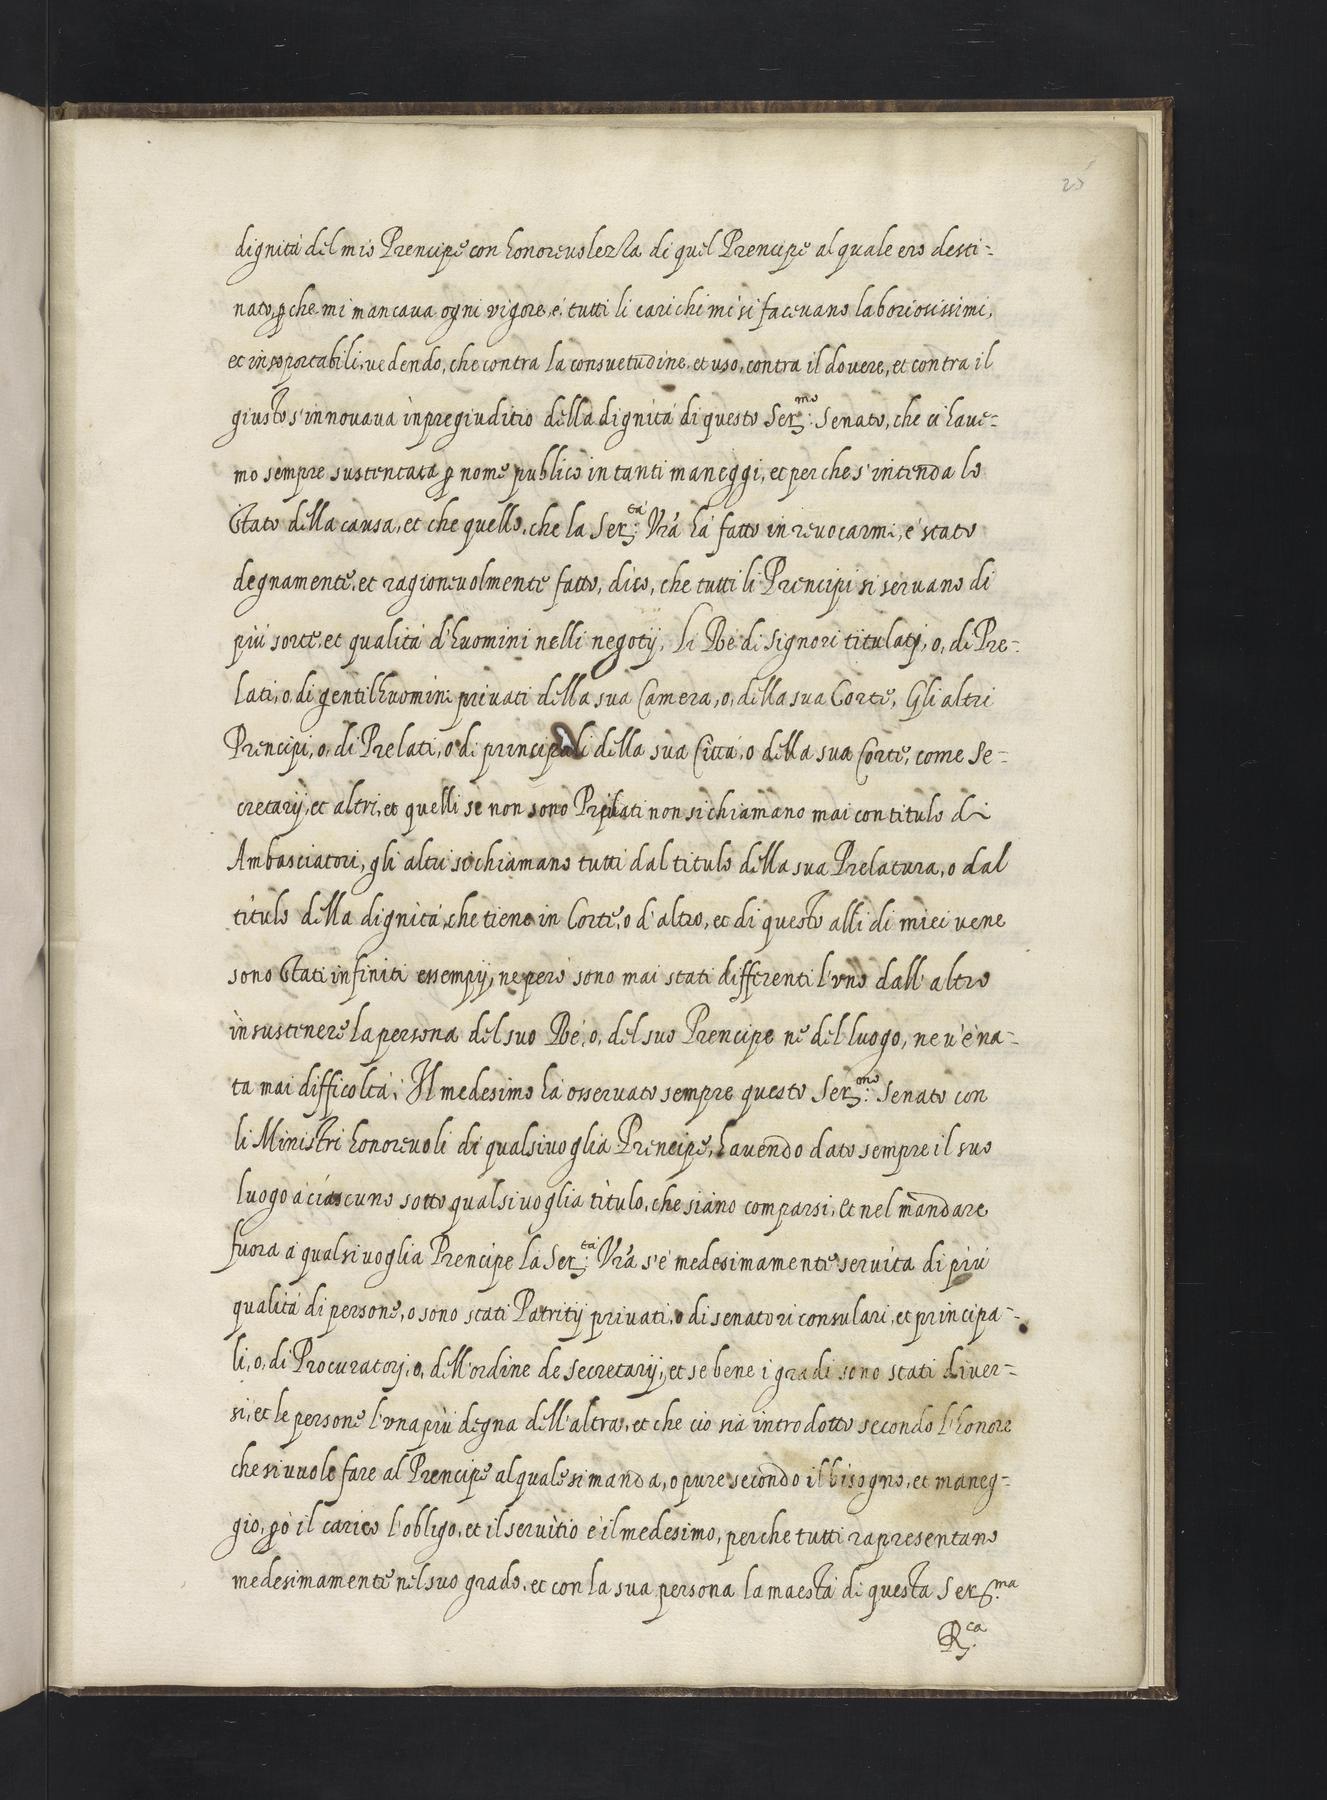 25
dignità del mio Prencipe con honoreuolezza di quel Prencipe al quale ero desti=
nato, ꝑche mi mancaua ogni vigore, e, tutti li carichi mi si faceuano laboriosissimi,
et insoportabili, uedendo, che contra la consuetudine, et uso, contra il douere, et contra il
giusto s'innouaua in pregiuditio della dignità di questo Ser.mo Senato, che ci haue=
mo sempre sustentata ꝑ nome publico in tanti maneggi, et perche s'intenda lo
stato della causa, et che quello, che la Ser.tà Vrã hà fatto in reuocarmi, e' stato
degnamente, et ragioneuolmente fatto, dico, che tutti li Prencipi si seruano di
più sorte, et qualità d'huomini nelli negotij, li Rè di signori titulati, o, di Pre=
lati, o di gentilhuomini priuati della sua Camera, o, della sua Corte, Gli altri
Prencipi, o, di Prelati, o di principali della sua Città, o della sua Corte, come Se=
cretarij, et altri, et quelli se non sono Prelati non si chiamano mai con titulo di
Ambasciatori, gli altri si chiamano tutti dal titulo della sua Prelatura, o dal
titulo della dignità, che tiene in Corte, o d'altro, et di questo alli dì miei uene
sono stati infiniti essempij, ne però sono mai stati differenti l'vno dall'altro
in sustenere la persona del suo Rè, o, del suo Prencipe ne del luogo, ne u'è na=
ta mai difficoltà; Il medesimo hà osseruato sempre questo Ser.mo Senato con
li Ministri honoreuoli di qualsiuoglia Prencipe, hauendo dato sempre il suo
luogo a ciascuno sotto qualsiuoglia titulo, che siano comparsi, et nel mandare
fuora a qualsiuoglia Prencipe la Ser.tà Vrã s'è medesimamente seruita di più
qualità di persone, o sono stati Patritij priuati, o di senatori consulari, et principa=
li, o, di Procuratorj, o, dell'ordine de secretarij, et se bene i gradi sono stati diuer=
si, et le persone l'vna più degna dell'altra, et che ciò sia introdotto secondo l'honore
che si uuole fare al Prencipe al quale si manda, o pure secondo il bisogno, et maneg=
gio, ꝑò il carico l'obligo, et il seruitio è il medesimo, perche tutti rapresentano
medesimamente nel suo grado, et con la sua persona la maestà di questa Ser.ma
R.ca